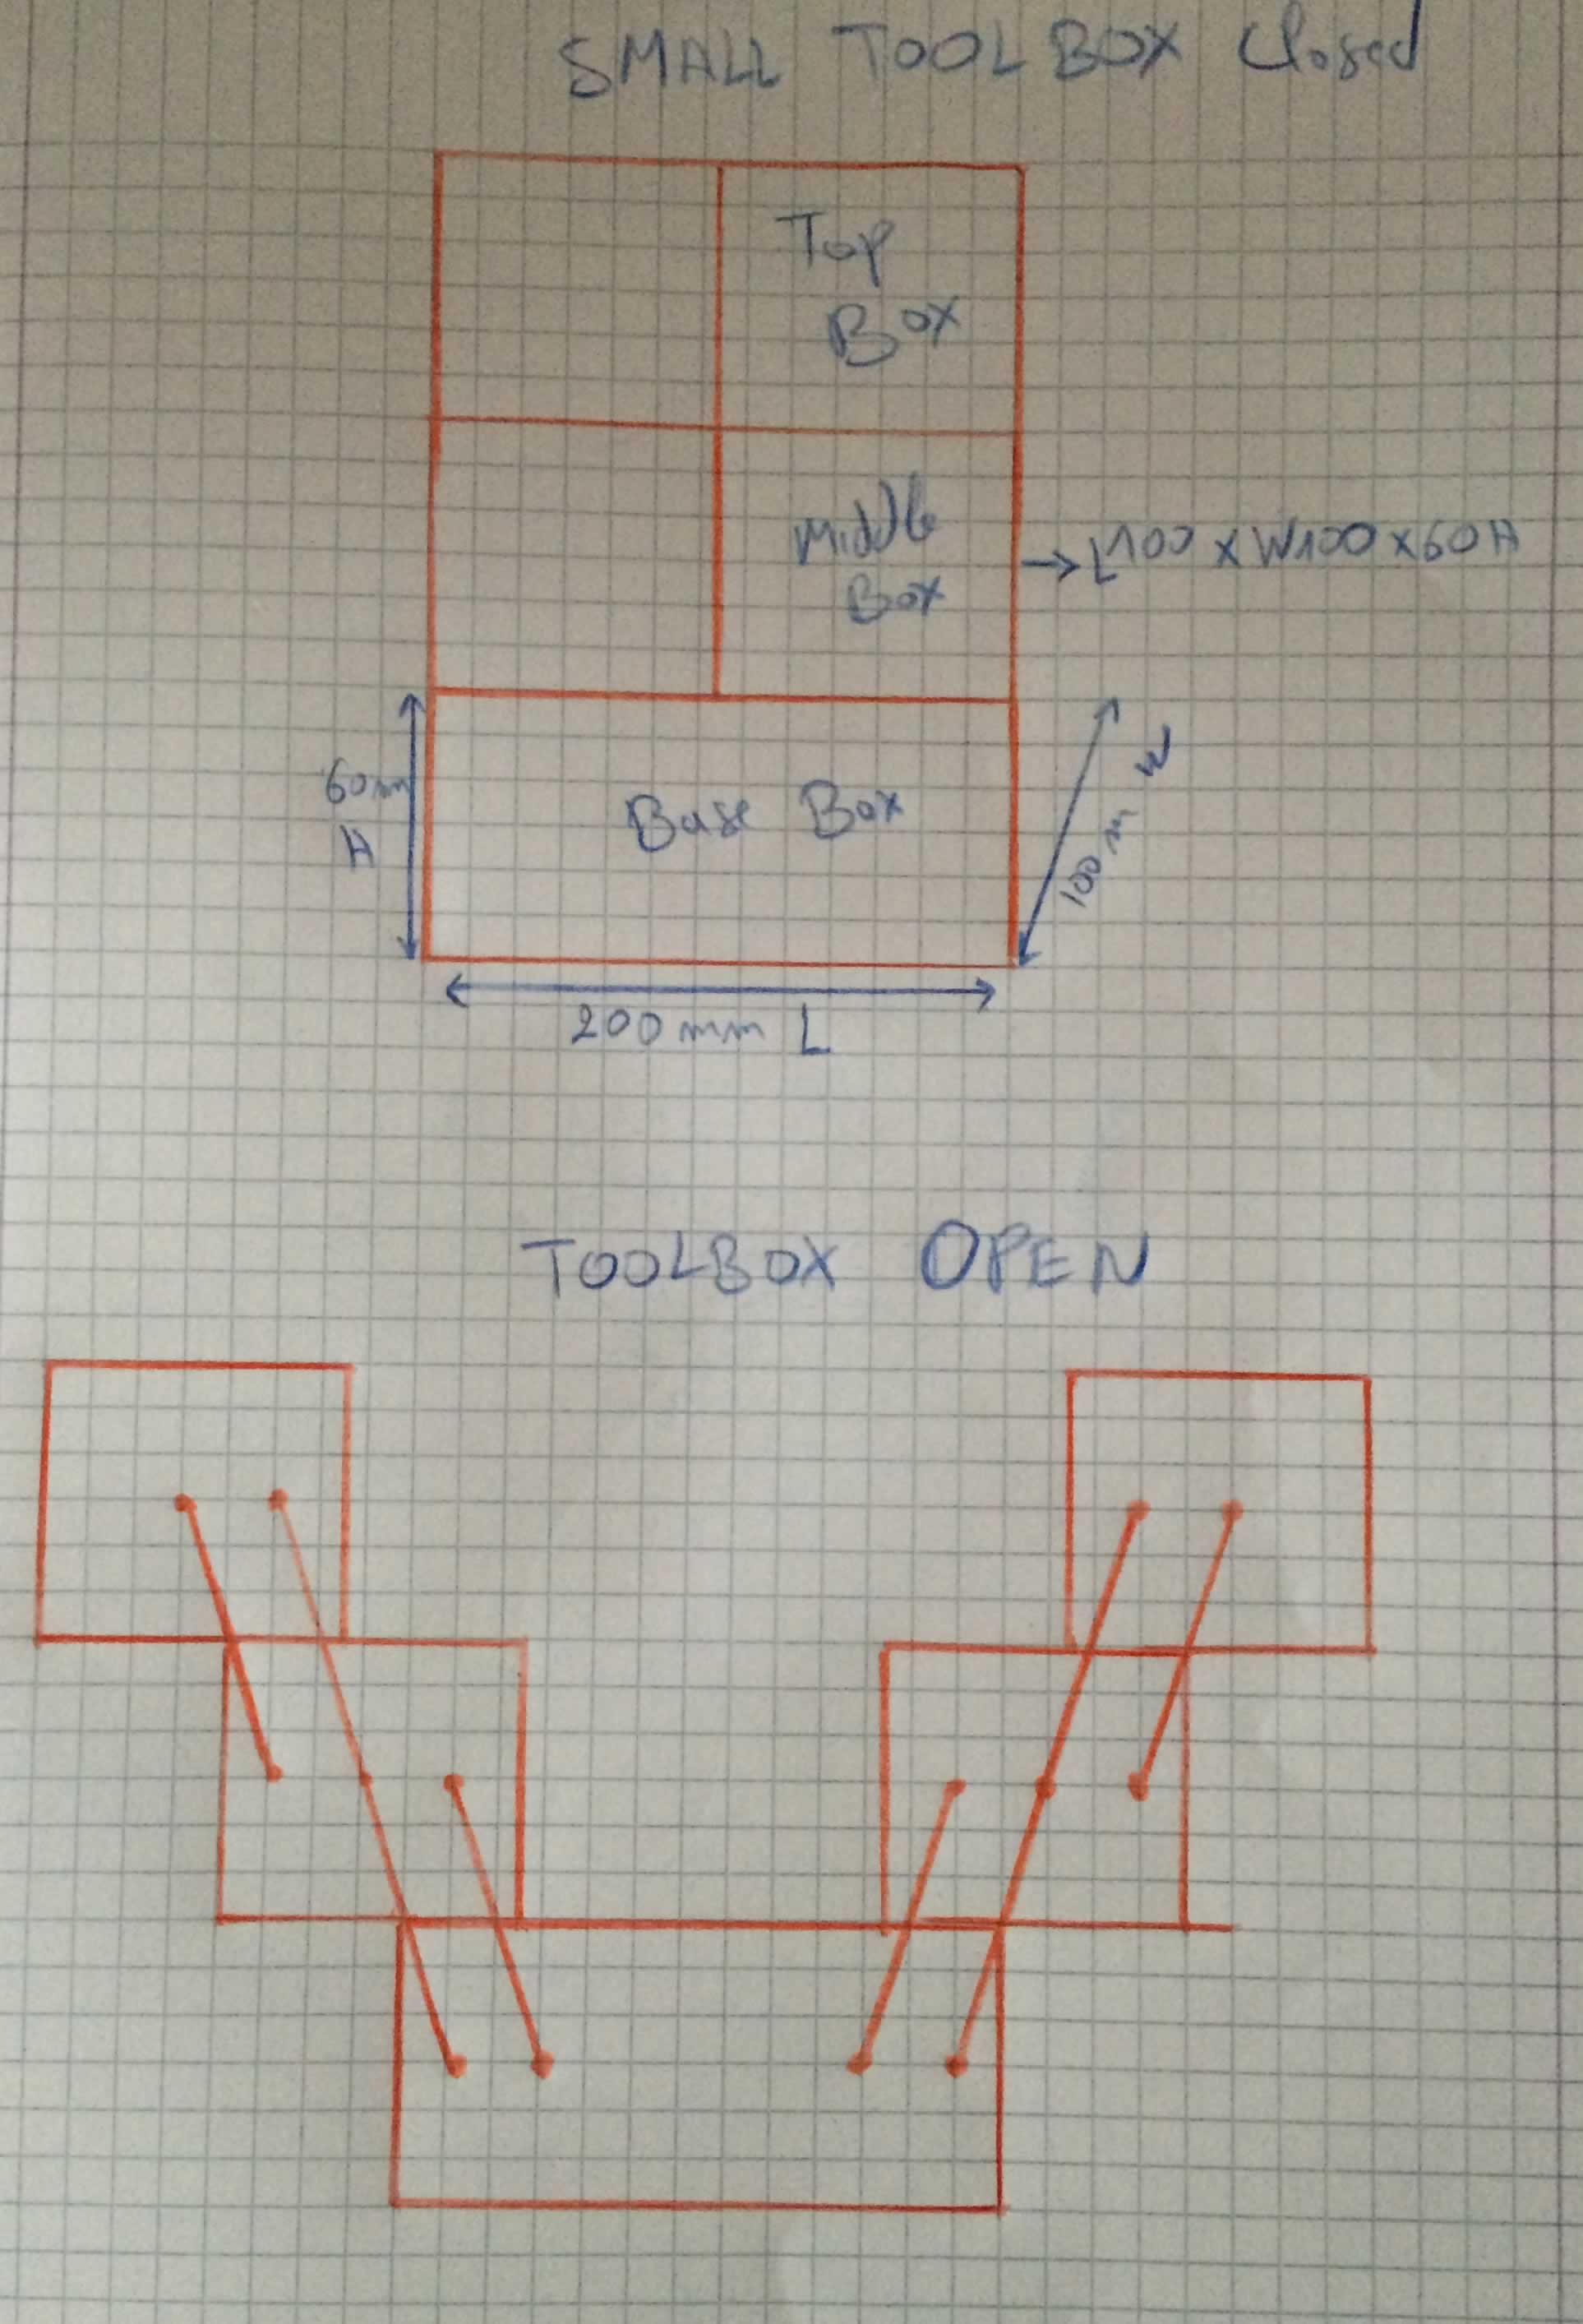 SMALL TOOLBOX Closed
Top
Box
Middle
Box
→ L100 x W100 x 60 H
60mm
H
Base Box
100 m W
200 mm L
TOOLBOX OPEN